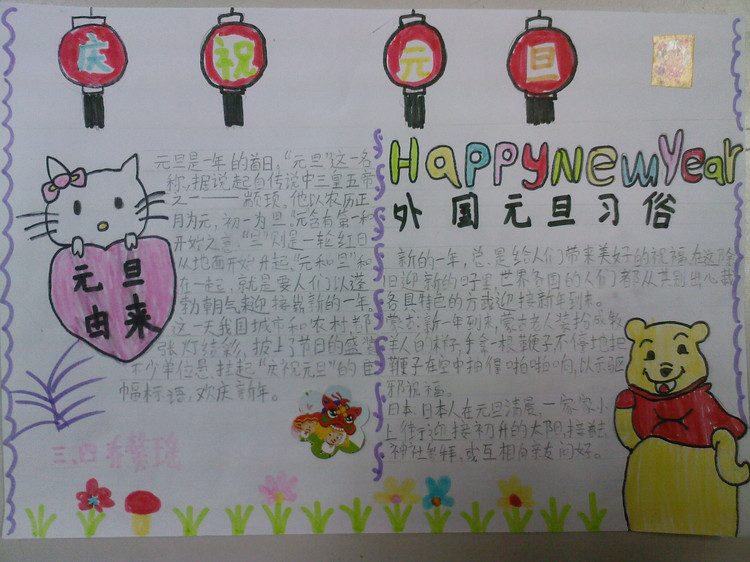 庆祝元旦
元旦是一年的首日,“元旦”这一名
称,据说起自传说中三皇五帝
之一——颛顼,他以农历正
月为元,初一为旦,“元”含有第一和
开始之意,“旦”则是一轮红日
从地面开始升起,“元和旦”和
在一起,就是要人们以蓬
勃朝气来迎接崭新的一年。
这一天我国城市和农村都
张灯结彩,披上了节日的盛装
不少单位悬挂起“庆祝元旦”的巨
幅标语,欢庆新年。
元旦
由来
三、四
Happy New Year
外国元旦习俗
新的一年,总是给人们带来美好的祝福,在这除
旧迎新的日子里,世界各国的人们都从
各具特色的方式迎接新年到来。
蒙古:新一年到来,蒙古老人装扮成牧
羊人的样子,手拿一根鞭子不停地把
鞭子在空中抽得啪啪啪响,以示驱
邪祝福。
日本:日本人在元旦清晨,一家老小
上街迎接初升的太阳,接着
神社参拜,或互相向亲友们好。